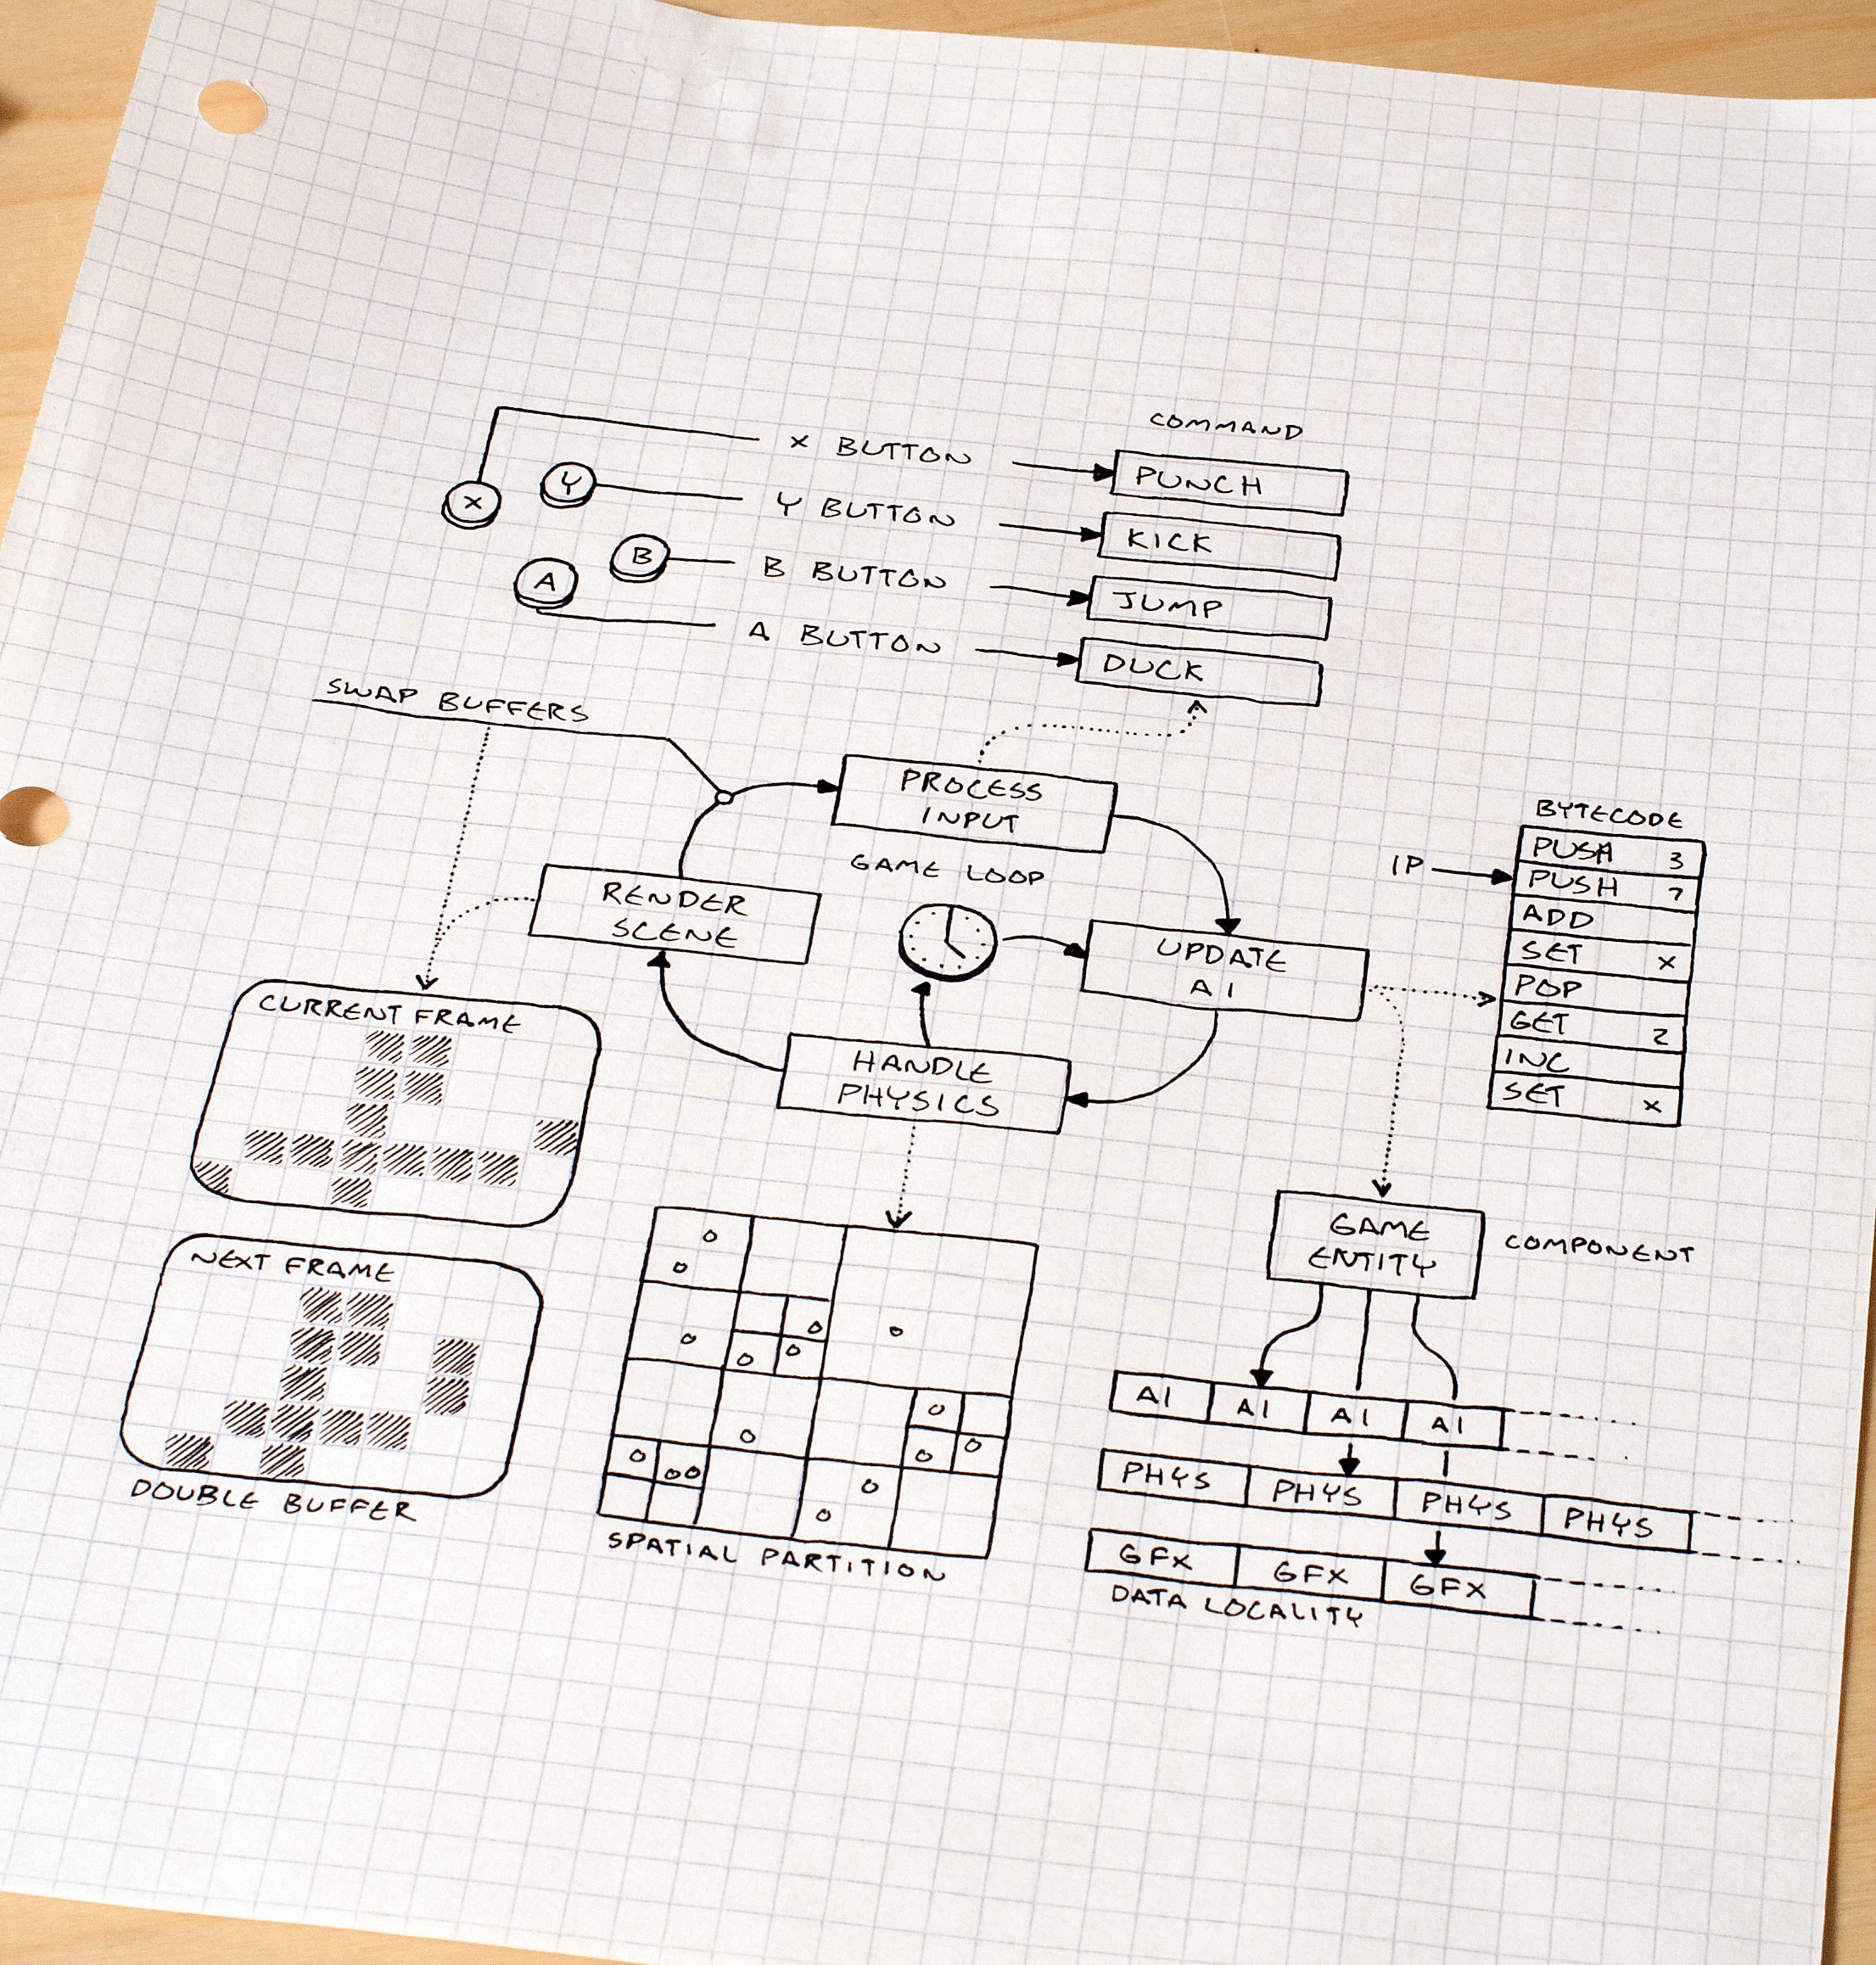 COMMAND
X
X BUTTON
PUNCH
Y
Y BUTTON
KICK
B
B BUTTON
JUMP
A
A BUTTON
DUCK
SWAP BUFFERS
PROCESS
INPUT
GAME LOOP
RENDER
SCENE
UPDATE
AI
HANDLE
PHYSICS
BYTECODE
IP
PUSH 3
PUSH 7
ADD
SET X
POP
GET 2
INC
SET X
CURRENT FRAME
NEXT FRAME
DOUBLE BUFFER
SPATIAL PARTITION
GAME
ENTITY
COMPONENT
AI AI AI AI
PHYS PHYS PHYS PHYS
GFX GFX GFX
DATA LOCALITY